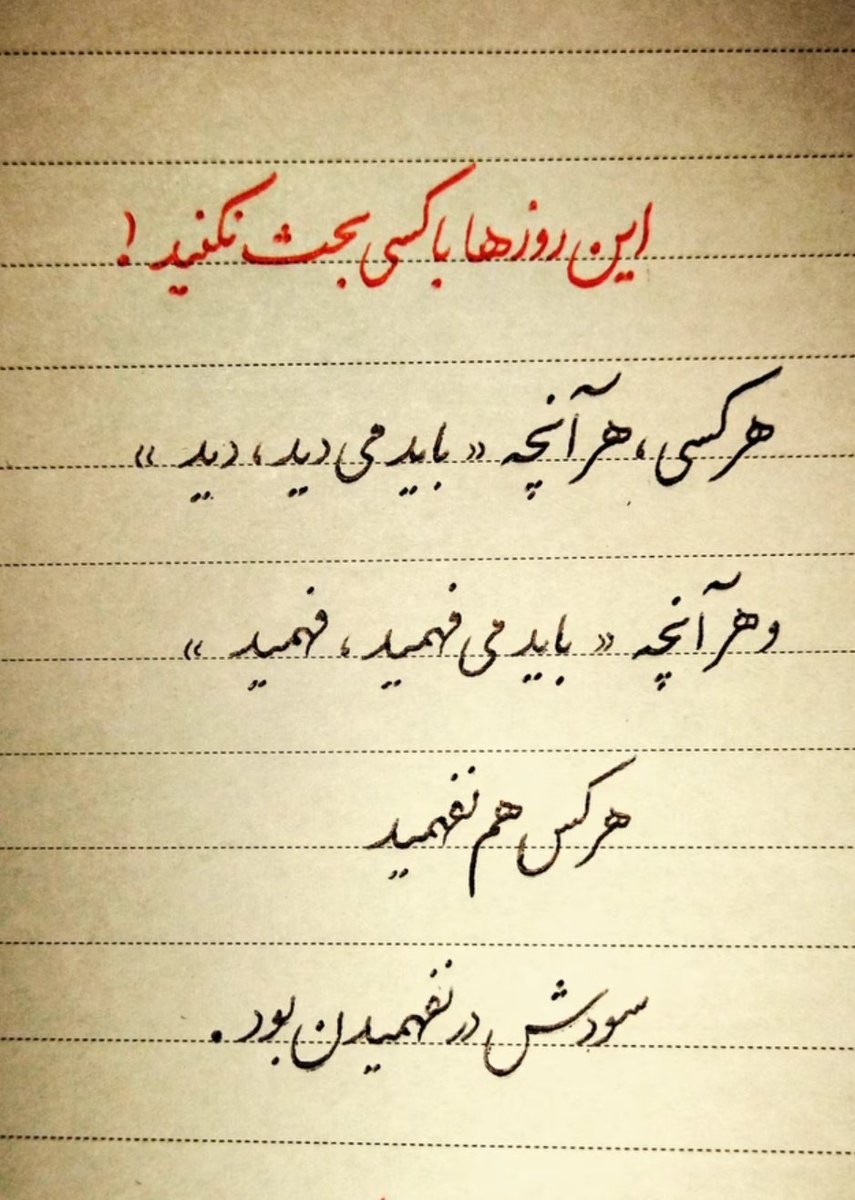 این روزها با کسی بحث نکنید !
هر کسی، هر آنچه « باید می دید، دید »
و هر آنچه « باید می فهمید، فهمید »
هر کس هم نفهمید
سودش در نفهمیدن بود .